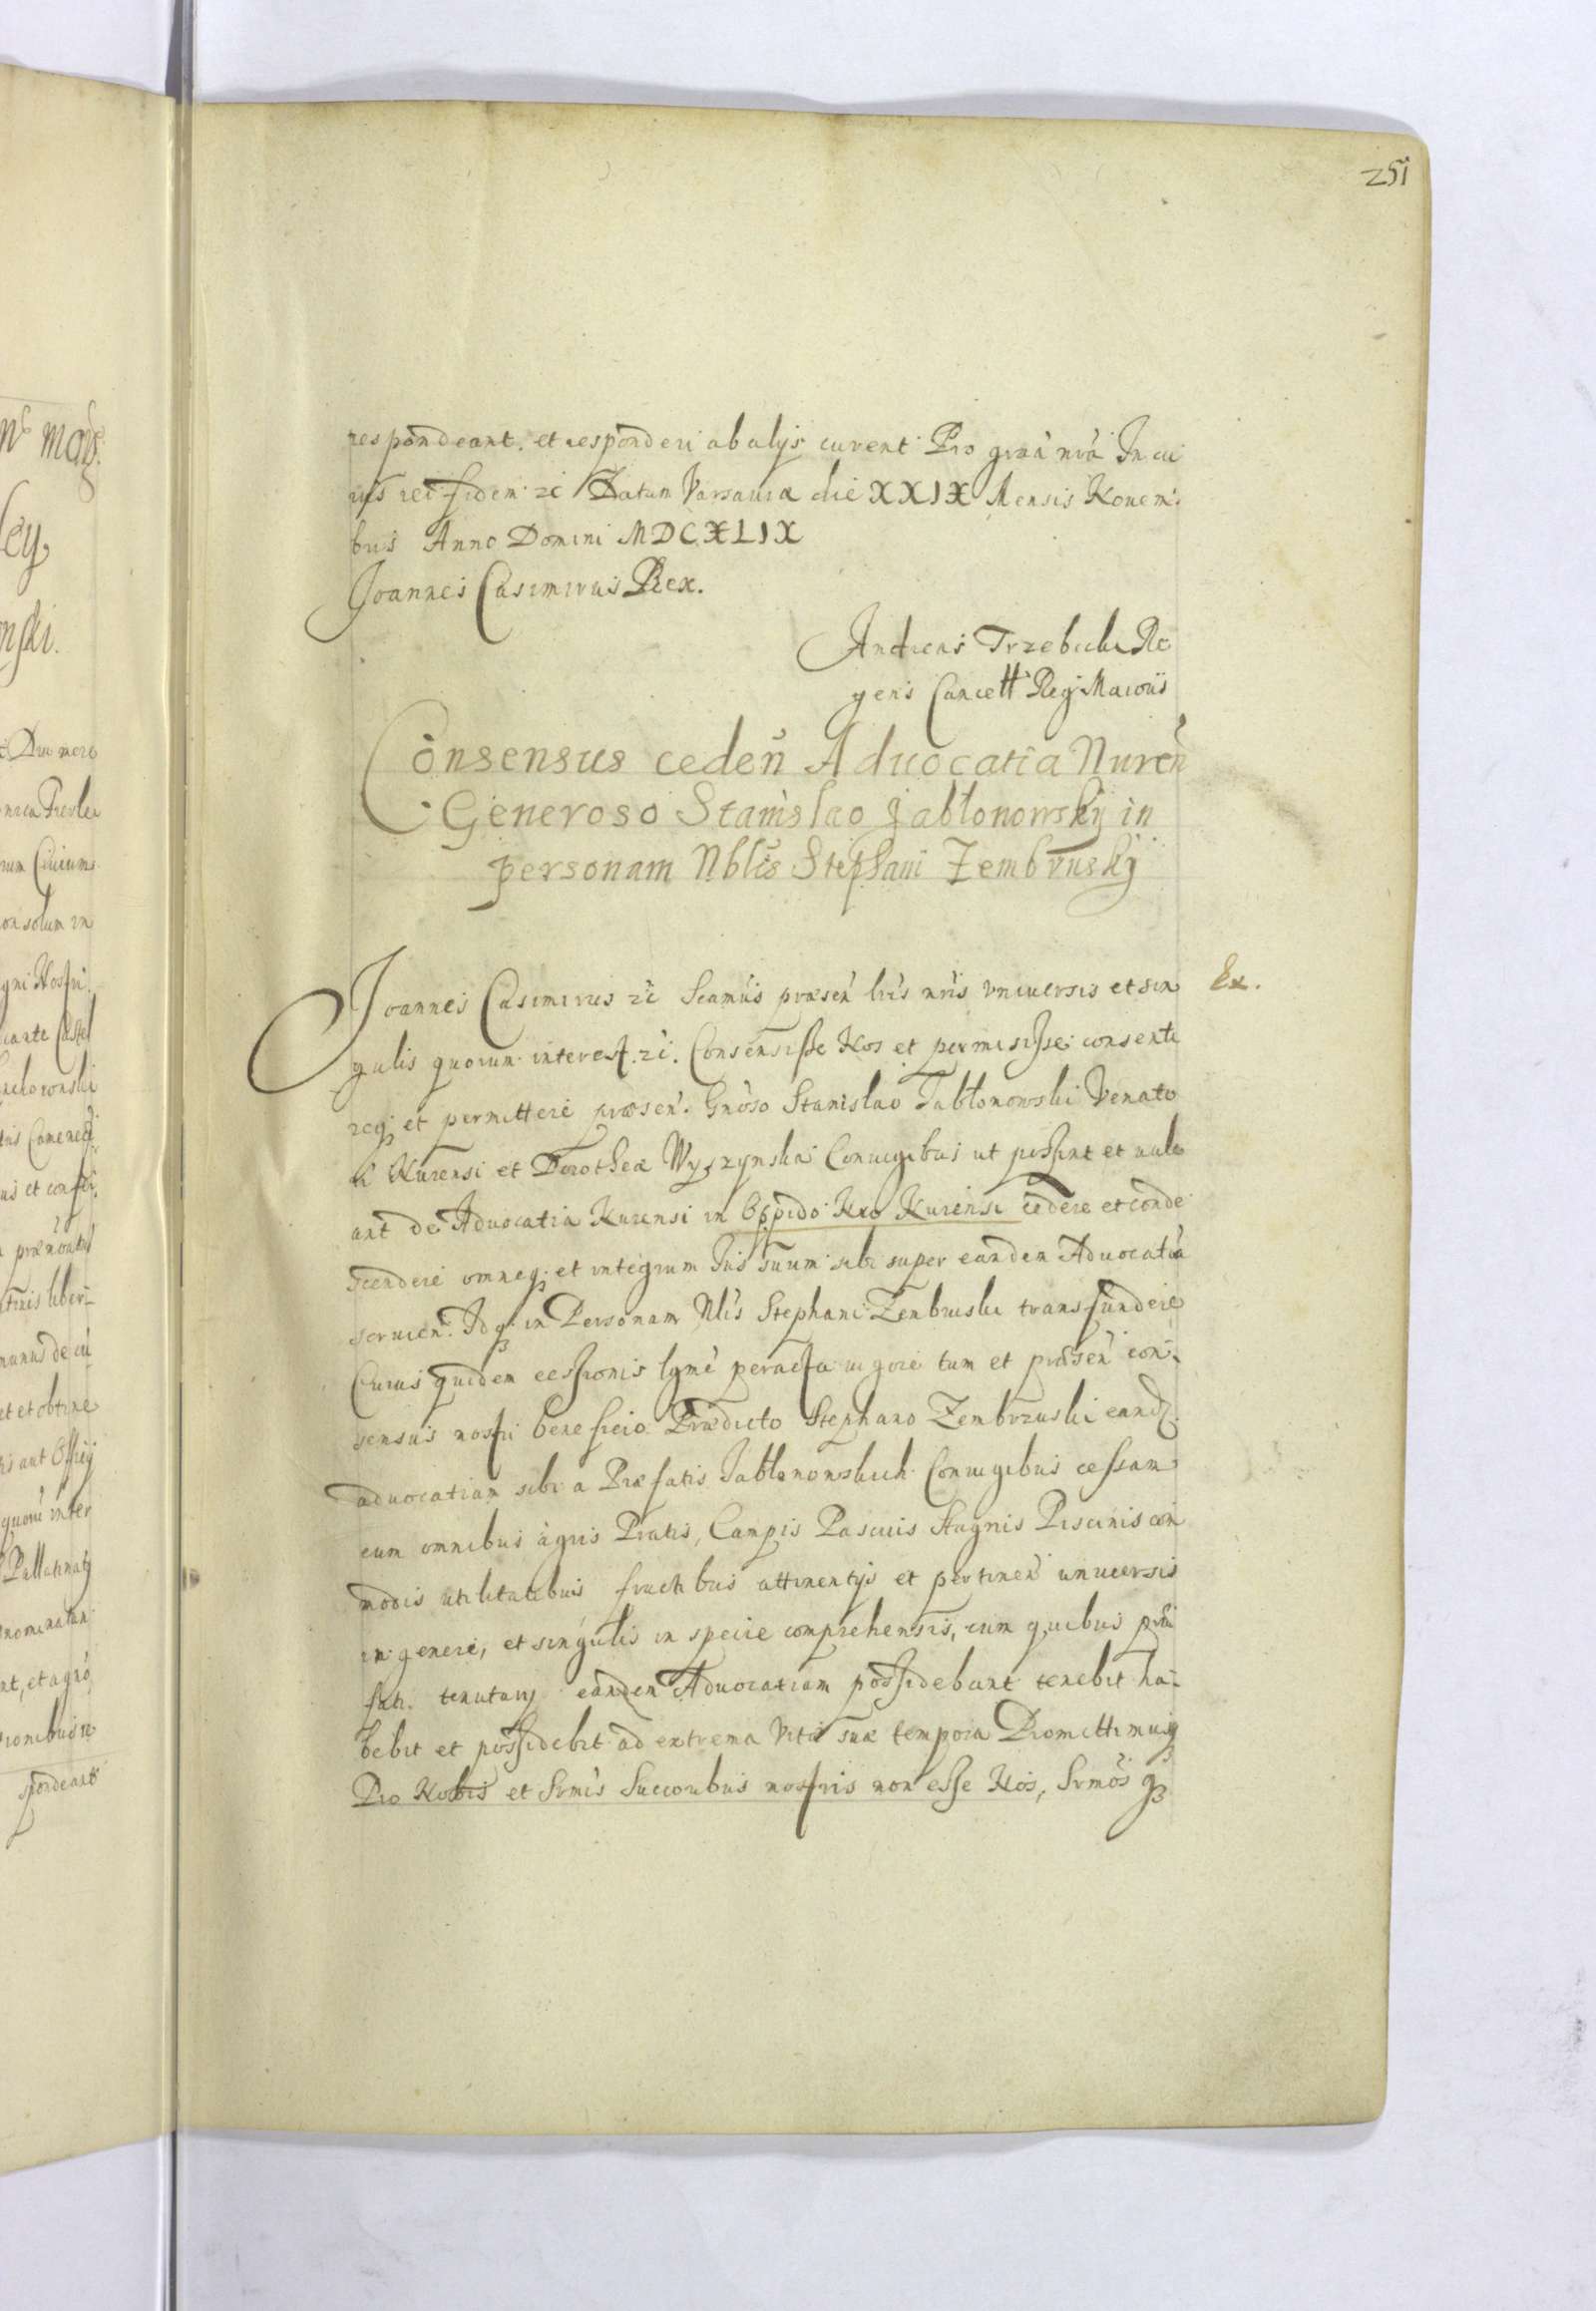 251
respondeant. et responderi ab alijs curent Pro graa nra In cu
ius rei fidem zc Datum Varsaviæ die XXIX Mensis Novem.
bris Anno Domini MDCXLIX
Joannes Casimirus Rex.
Andreas Trzebicki Re
gens Cancell Reg. Maioris
Consensus ceden Aduocatia Nuren
Generoso Stanislao Jabłonowsky in
personam Nblis Stephani Zembrusky
Ex.
Joannes Casimirus zc Seamus præsen lris nris vniuersis et sin
gulis quorum interest. zc. Consensisse Nos et permisisse consenti
req; et permittere præsen. Gnoso Stanislao Jabłonowski Venato
ri Nurensi et Dorotheæ Wyszynska Coniugibus ut possint et vale
ant de Aduocatia Nurensi in Oppido Nro Nurensi cedere et conde
scendere omneq; et integrum Ius suum sibi super eandem Aduocatia
seruien. Idq; in Personam Nlis Stephani Zembruski transfundere
Cuius quidem cessionis lgme peractæ uigore tum et præsen con-
sensus nostri beneficio Prædicto Stephano Zembrzuski eand
aduocatiam sibi a Præfatis Jabłonowskich Coniugibus cessam
cum omnibus agris Pratis, Campis Pascuis Stagnis Piscinis com
modis utilitatibus fructibus attinentijs et pertinen uniuersis
in genere, et singulis in specie comprehensis, cum quibus præ
fati tenutarij eandem Aduocatiam possidebant tenebit ha-
bebit et possidebit ad extrema Vitæ suæ tempora Promittimusq;
Pro Nobis et Srmis Succoribus nostris non esse Nos, Srmos q;